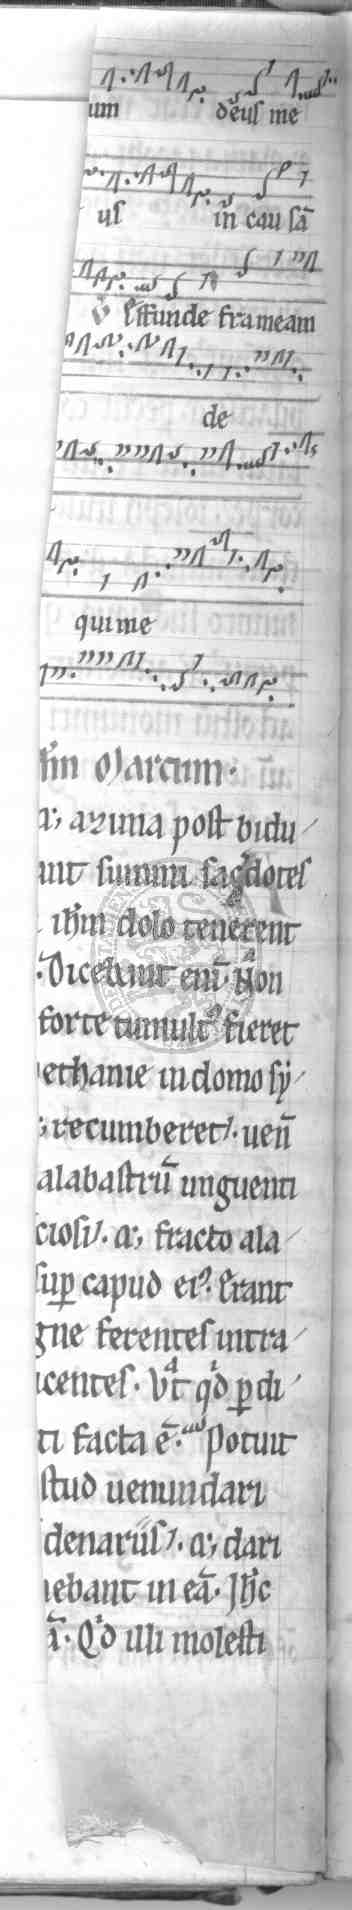 um deus me
us in cau sā
effunde frameam
de
qui me
Marcum.
azima post bidu
unt summi sac̄dotes
ih̄m dolo tenerent
Dicebant eni̅. Non
forte tumultꝰ fieret
ethanie in domo sy
recumberet. uen̄
alabastrū unguenti
ciosi. fracto ala
sup̱ capud eiꝰ. Erant
gne ferentes intra
centes. Vt qd ꝑdi
ti facta ē. Potuit
stud uenundari
denariis. dari
ebant in eā. Ih̄c
Qd illi molesti